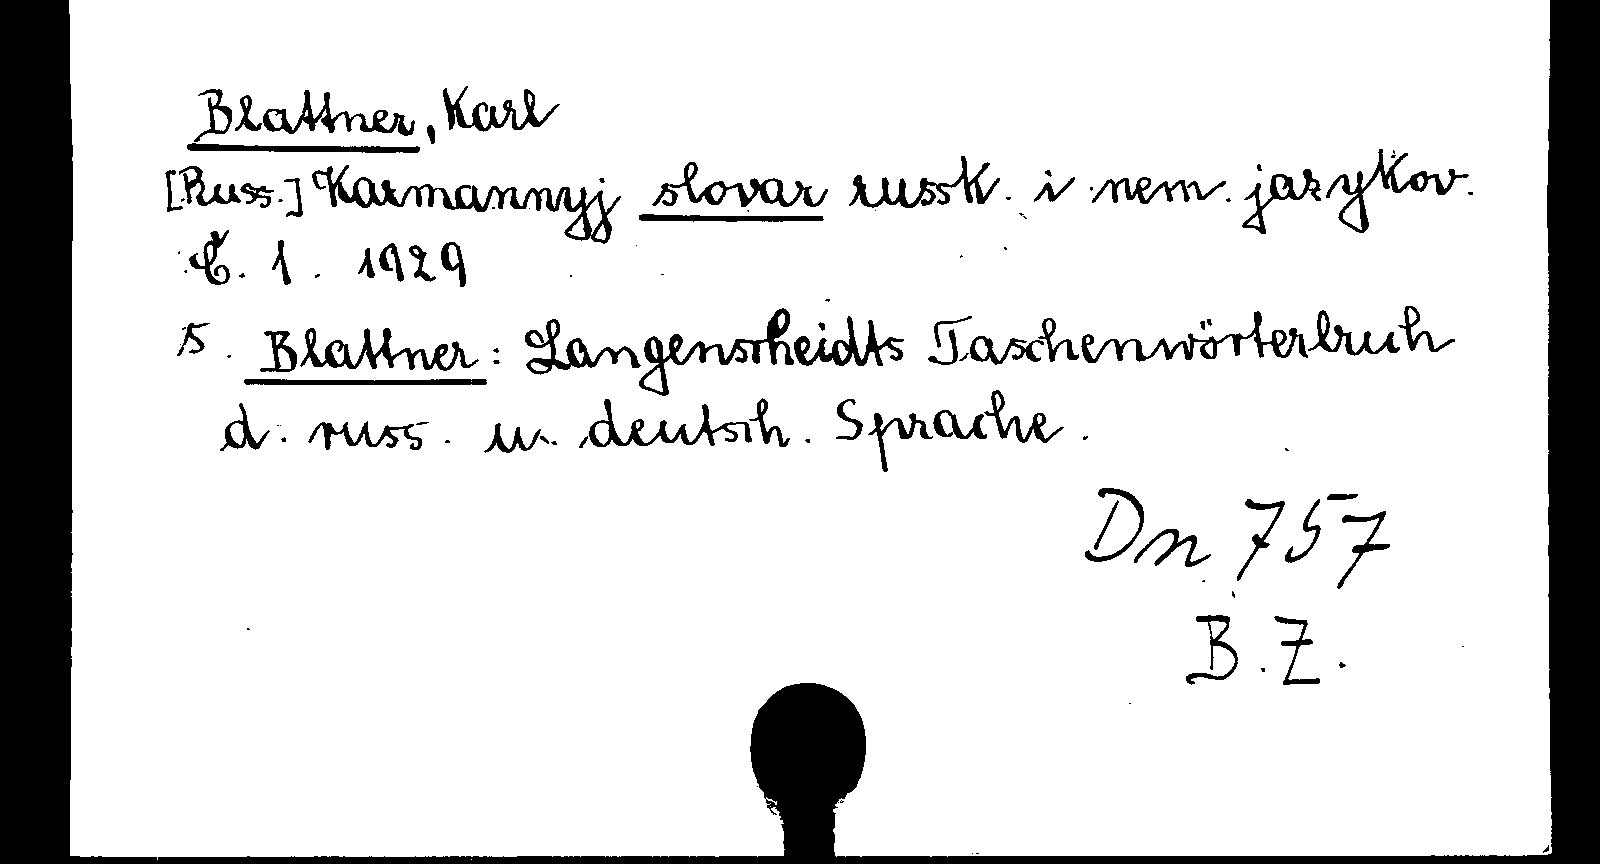 Blattner, Karl
[Russ.] Karmannyj slovar russk. i nem. jazykov.
Č. 1. 1929
s. Blattner: Langenscheidts Taschenwörterbuch
d. russ. u. deutsch. Sprache.
Dn 757
B.Z.